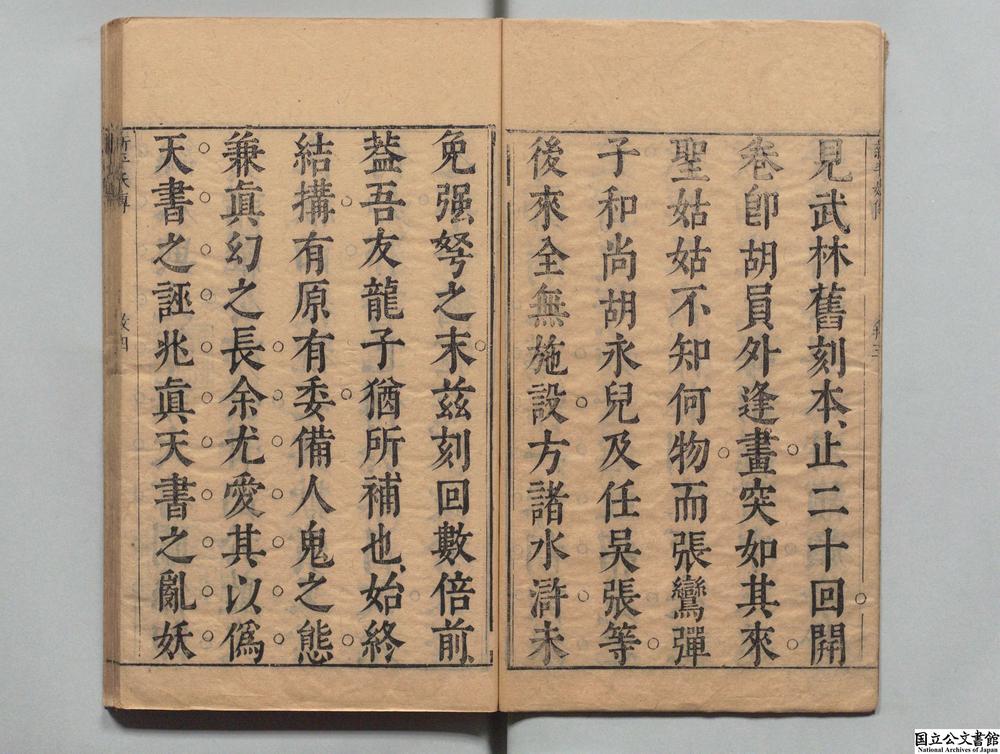 見武林舊刻本、止二十回開
卷卽胡員外逢畫突如其來
聖姑姑不知何物而張鸞彈
子和尚胡永兒及任吳張等
後來全無施設方諸水滸未
免强弩之末茲刻回數倍前、
葢吾友龍子猶所補也、始終
結搆有原有委備人鬼之態
兼眞幻之長余尤愛其以僞
天書之誣兆眞天書之亂妖
国立公文書館
National Archives of Japan